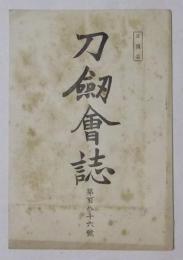 刀劍會誌
第百八十六號